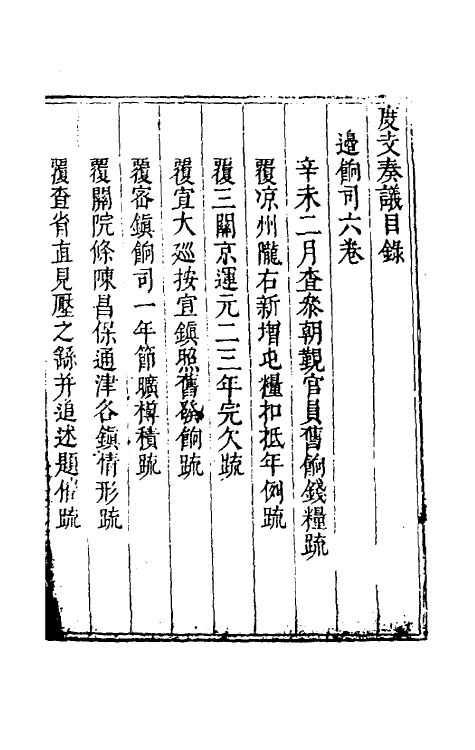 度支奏議目錄
邊餉司六卷
辛未二月查叅朝覲官員舊餉錢糧疏
覆凉州隴右新增屯糧扣抵年例疏
覆三關京運元二三年完欠疏
覆宣大廵按宣鎮照舊發餉疏
覆密鎮餉司一年節曠樽積疏
覆關院條陳昌保通津各鎮情形疏
覆查省直見壓之餘并追述題催疏